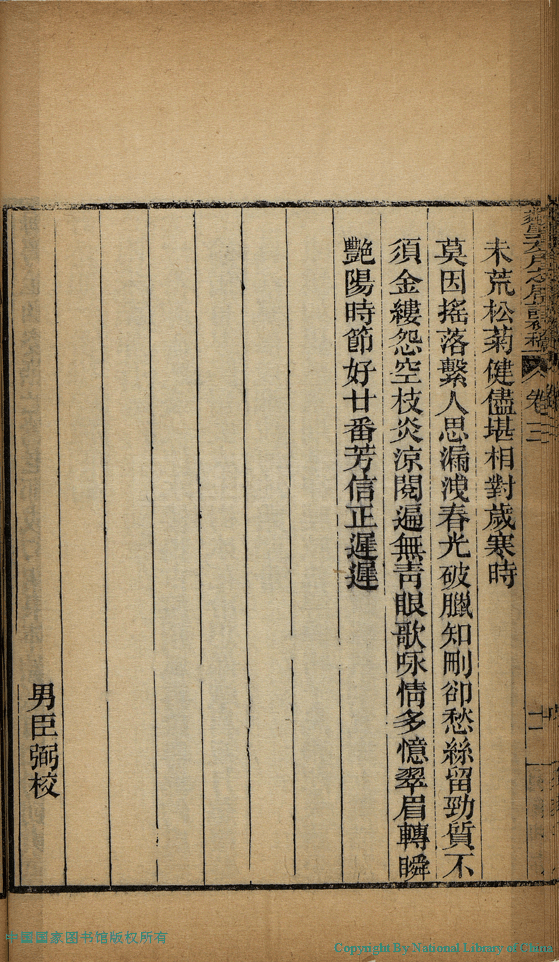 未荒松菊健儘堪相對歲寒時
莫因搖落繫人思漏洩春光破臘知刪卻愁絲留勁質不
須金縷怨空枝炎涼閱遍無靑眼歌咏情多憶翠眉轉瞬
艷陽時節好廿番芳信正遲遲
男臣弼校
卷三
中國國家图书馆版权所有
Copyright By National Library of China